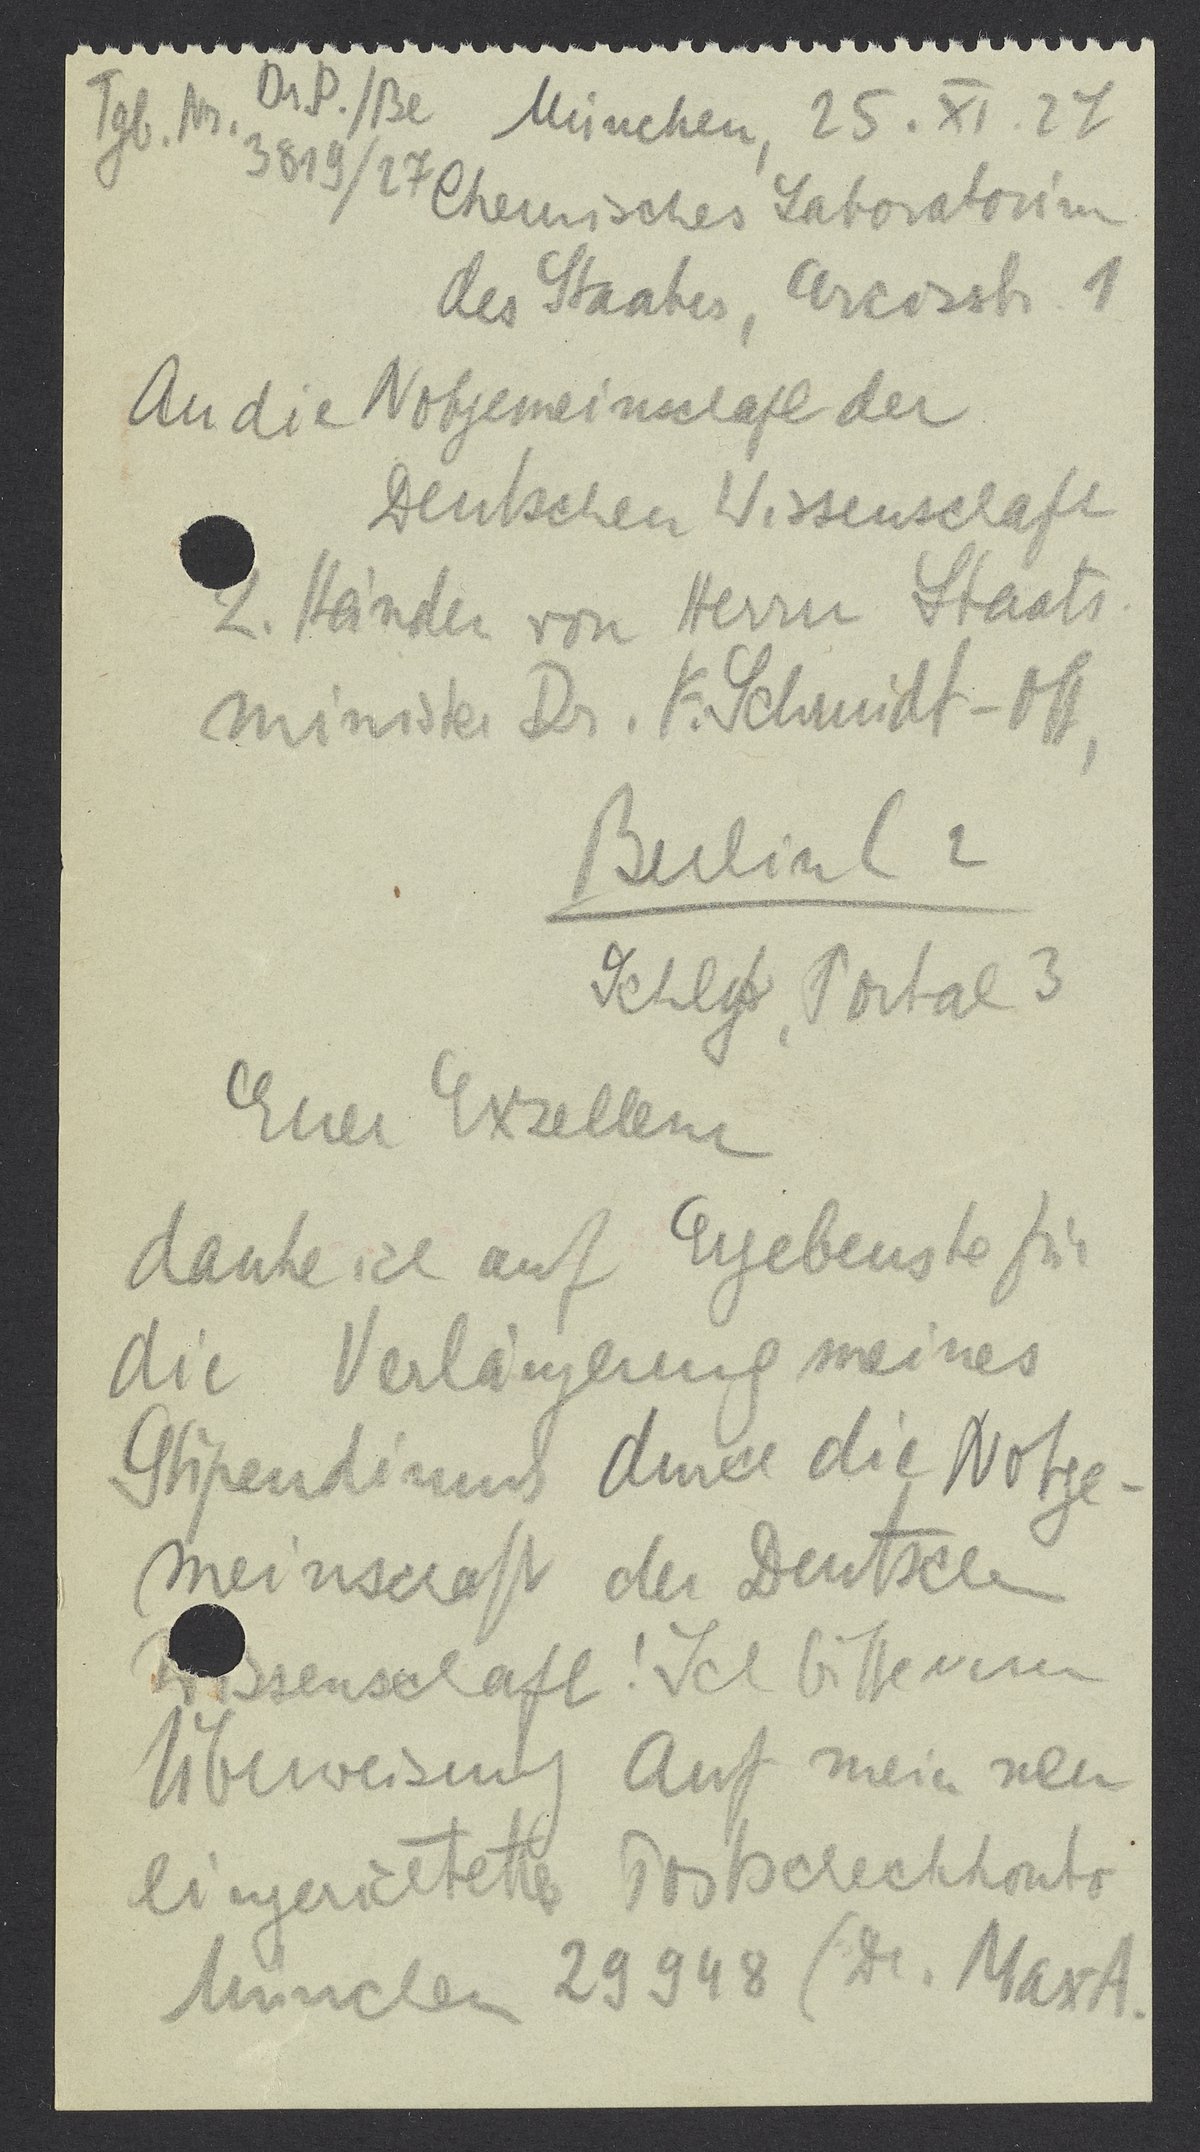 Tgb. Nr. Dr. P./Be
3819/27
München, 25. XI. 27
Chemisches Laboratorium
des Staates, Arcisstr. 1
An die Notgemeinschaft der
Deutschen Wissenschaft
z. Händen von Herrn Staats-
minister Dr. F. Schmidt-Ott,
Berlin C 2
Schloß, Portal 3
Euer Exzellenz
danke ich auf Ergebenste für
die Verlängerung meines
Stipendiums durch die Notge-
meinschaft der Deutschen
Wissenschaft! Ich bitte um
Überweisung auf mein neu
eingerichtetes Postscheckkonto
München 29948 (Dr. Max A.